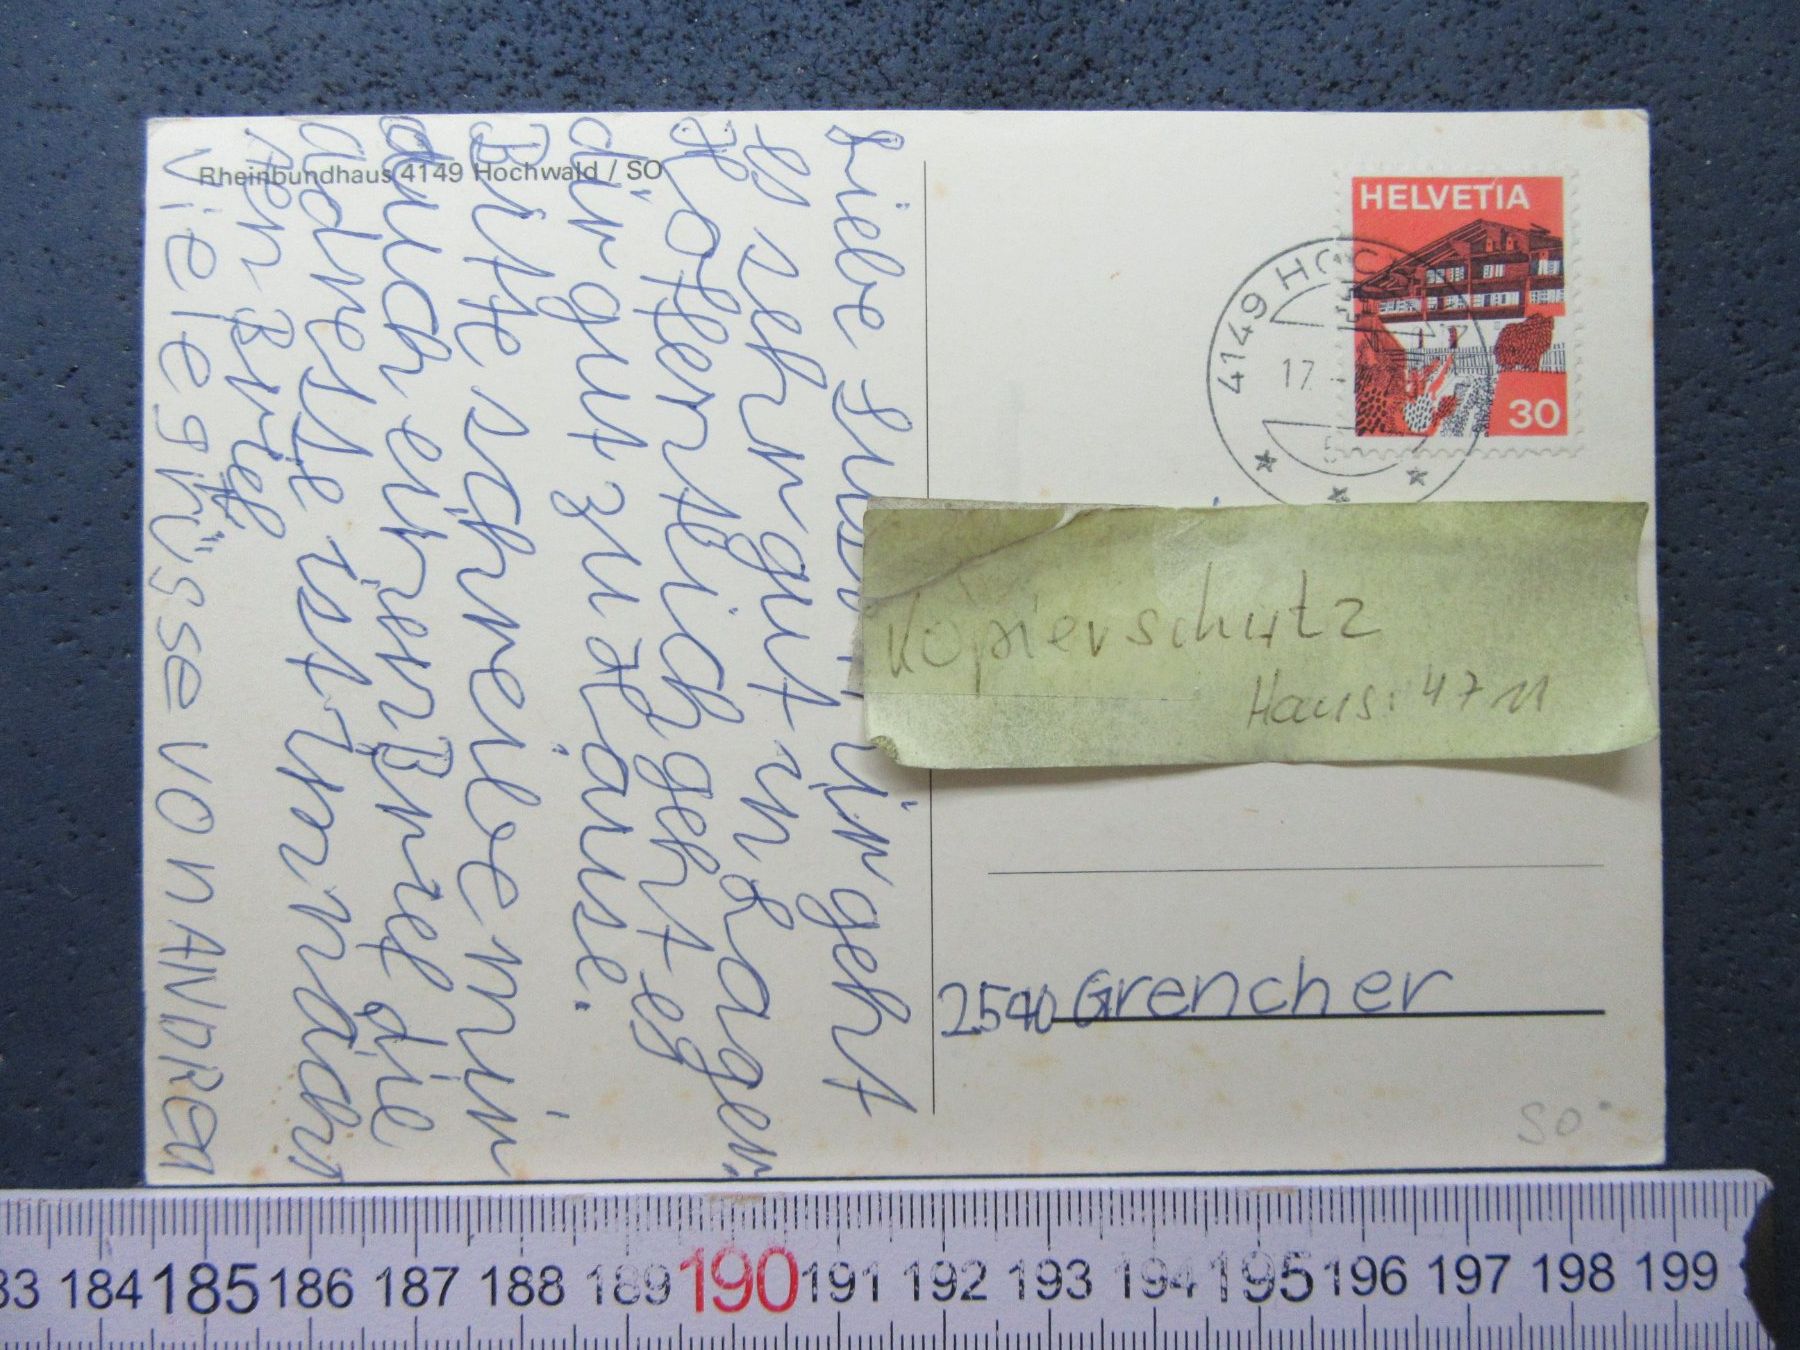 Rheinbundhaus 4149 Hochwald / SO
Liebe ir geht
es sehr gut in Lager.
Hoffentlich geht es
dir gut zu Hause.
Bitte schreibe mir
auch einen Brief die
adresse ist
den Brief
Vielegrüsse von ANDREA
HELVETIA
30
4149 HOC
17.
Kopierschutz
Haus: 4711
2540 Grenchen
SO
183 184 185 186 187 188 189 190 191 192 193 194 195 196 197 198 199